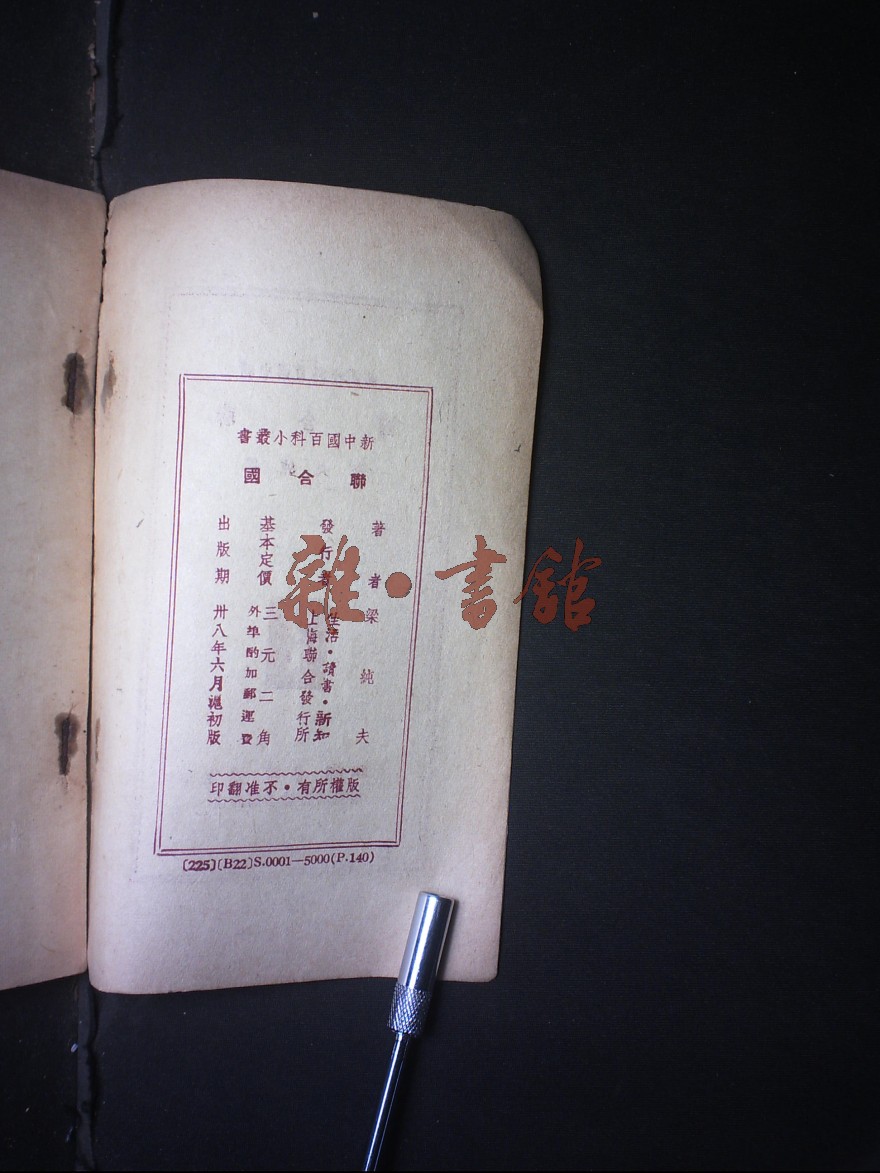 新中國百科小叢書
聯合國
著者 梁純夫
發行者 生活·讀書·新知
上海聯合發行所
基本定價 三元二角
外埠酌加郵運費
出版期 卅八年六月滬初版
版權所有·不准翻印
〔225〕〔B22〕S.0001—5000(P.140)
雜·書館